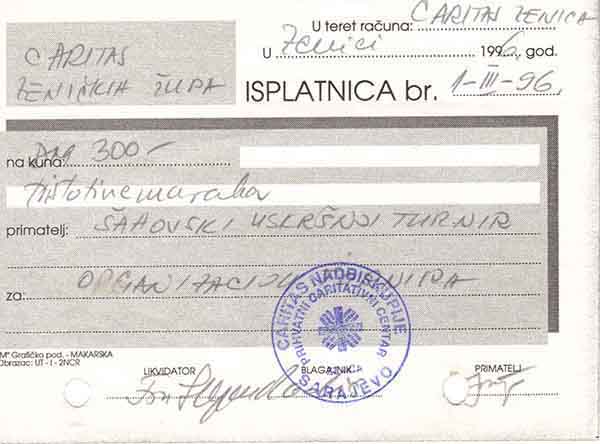 U teret računa: CARITAS ZENICA
CARITAS
ZENIČKIH ŽUPA
U Zenici 1996. god.
ISPLATNICA br. 1-III-96.
na kuna: 300-
tristotine maraka
primatelj: ŠAHOVSKI USKRŠNJI TURNIR
za: ORGANIZACIJU TURNIRA
CARITAS NADBISKUPIJE
PRIHVATNI CARITATIVNI CENTAR
SARAJEVO
M" Grafičko pod. - MAKARSKA
Obrazac: UT - I - 2NCR
LIKVIDATOR BLAGAJNIK PRIMATELJ